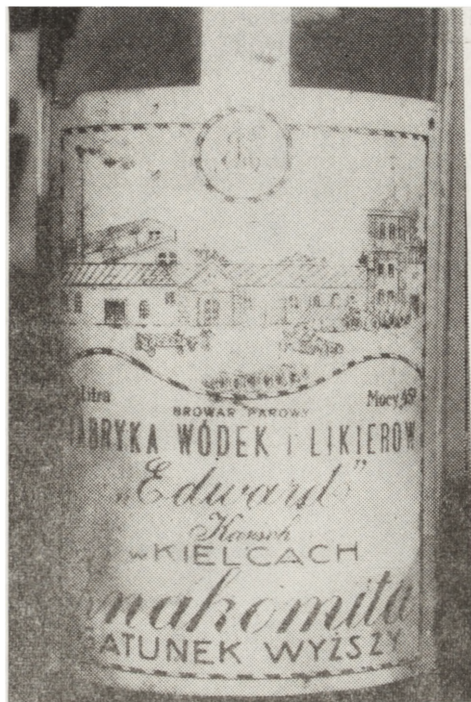 Litra Mocy 45°
BROWAR PAROWY
FABRYKA WÓDEK I LIKIERÓW
„Edward”
Karsch
w KIELCACH
Znakomita
GATUNEK WYŻSZY